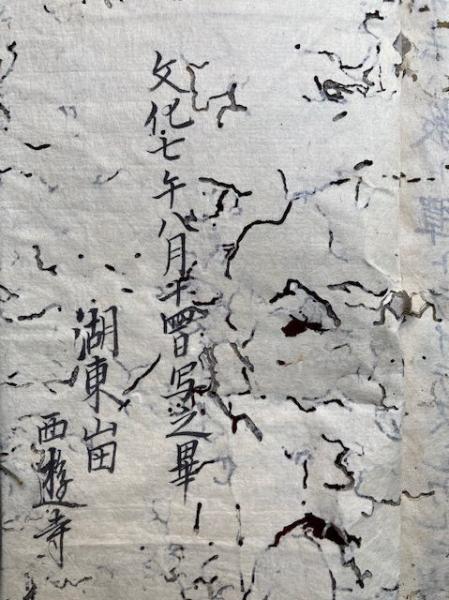 文化七午八月四日写之畢
湖東畄
西遊寺